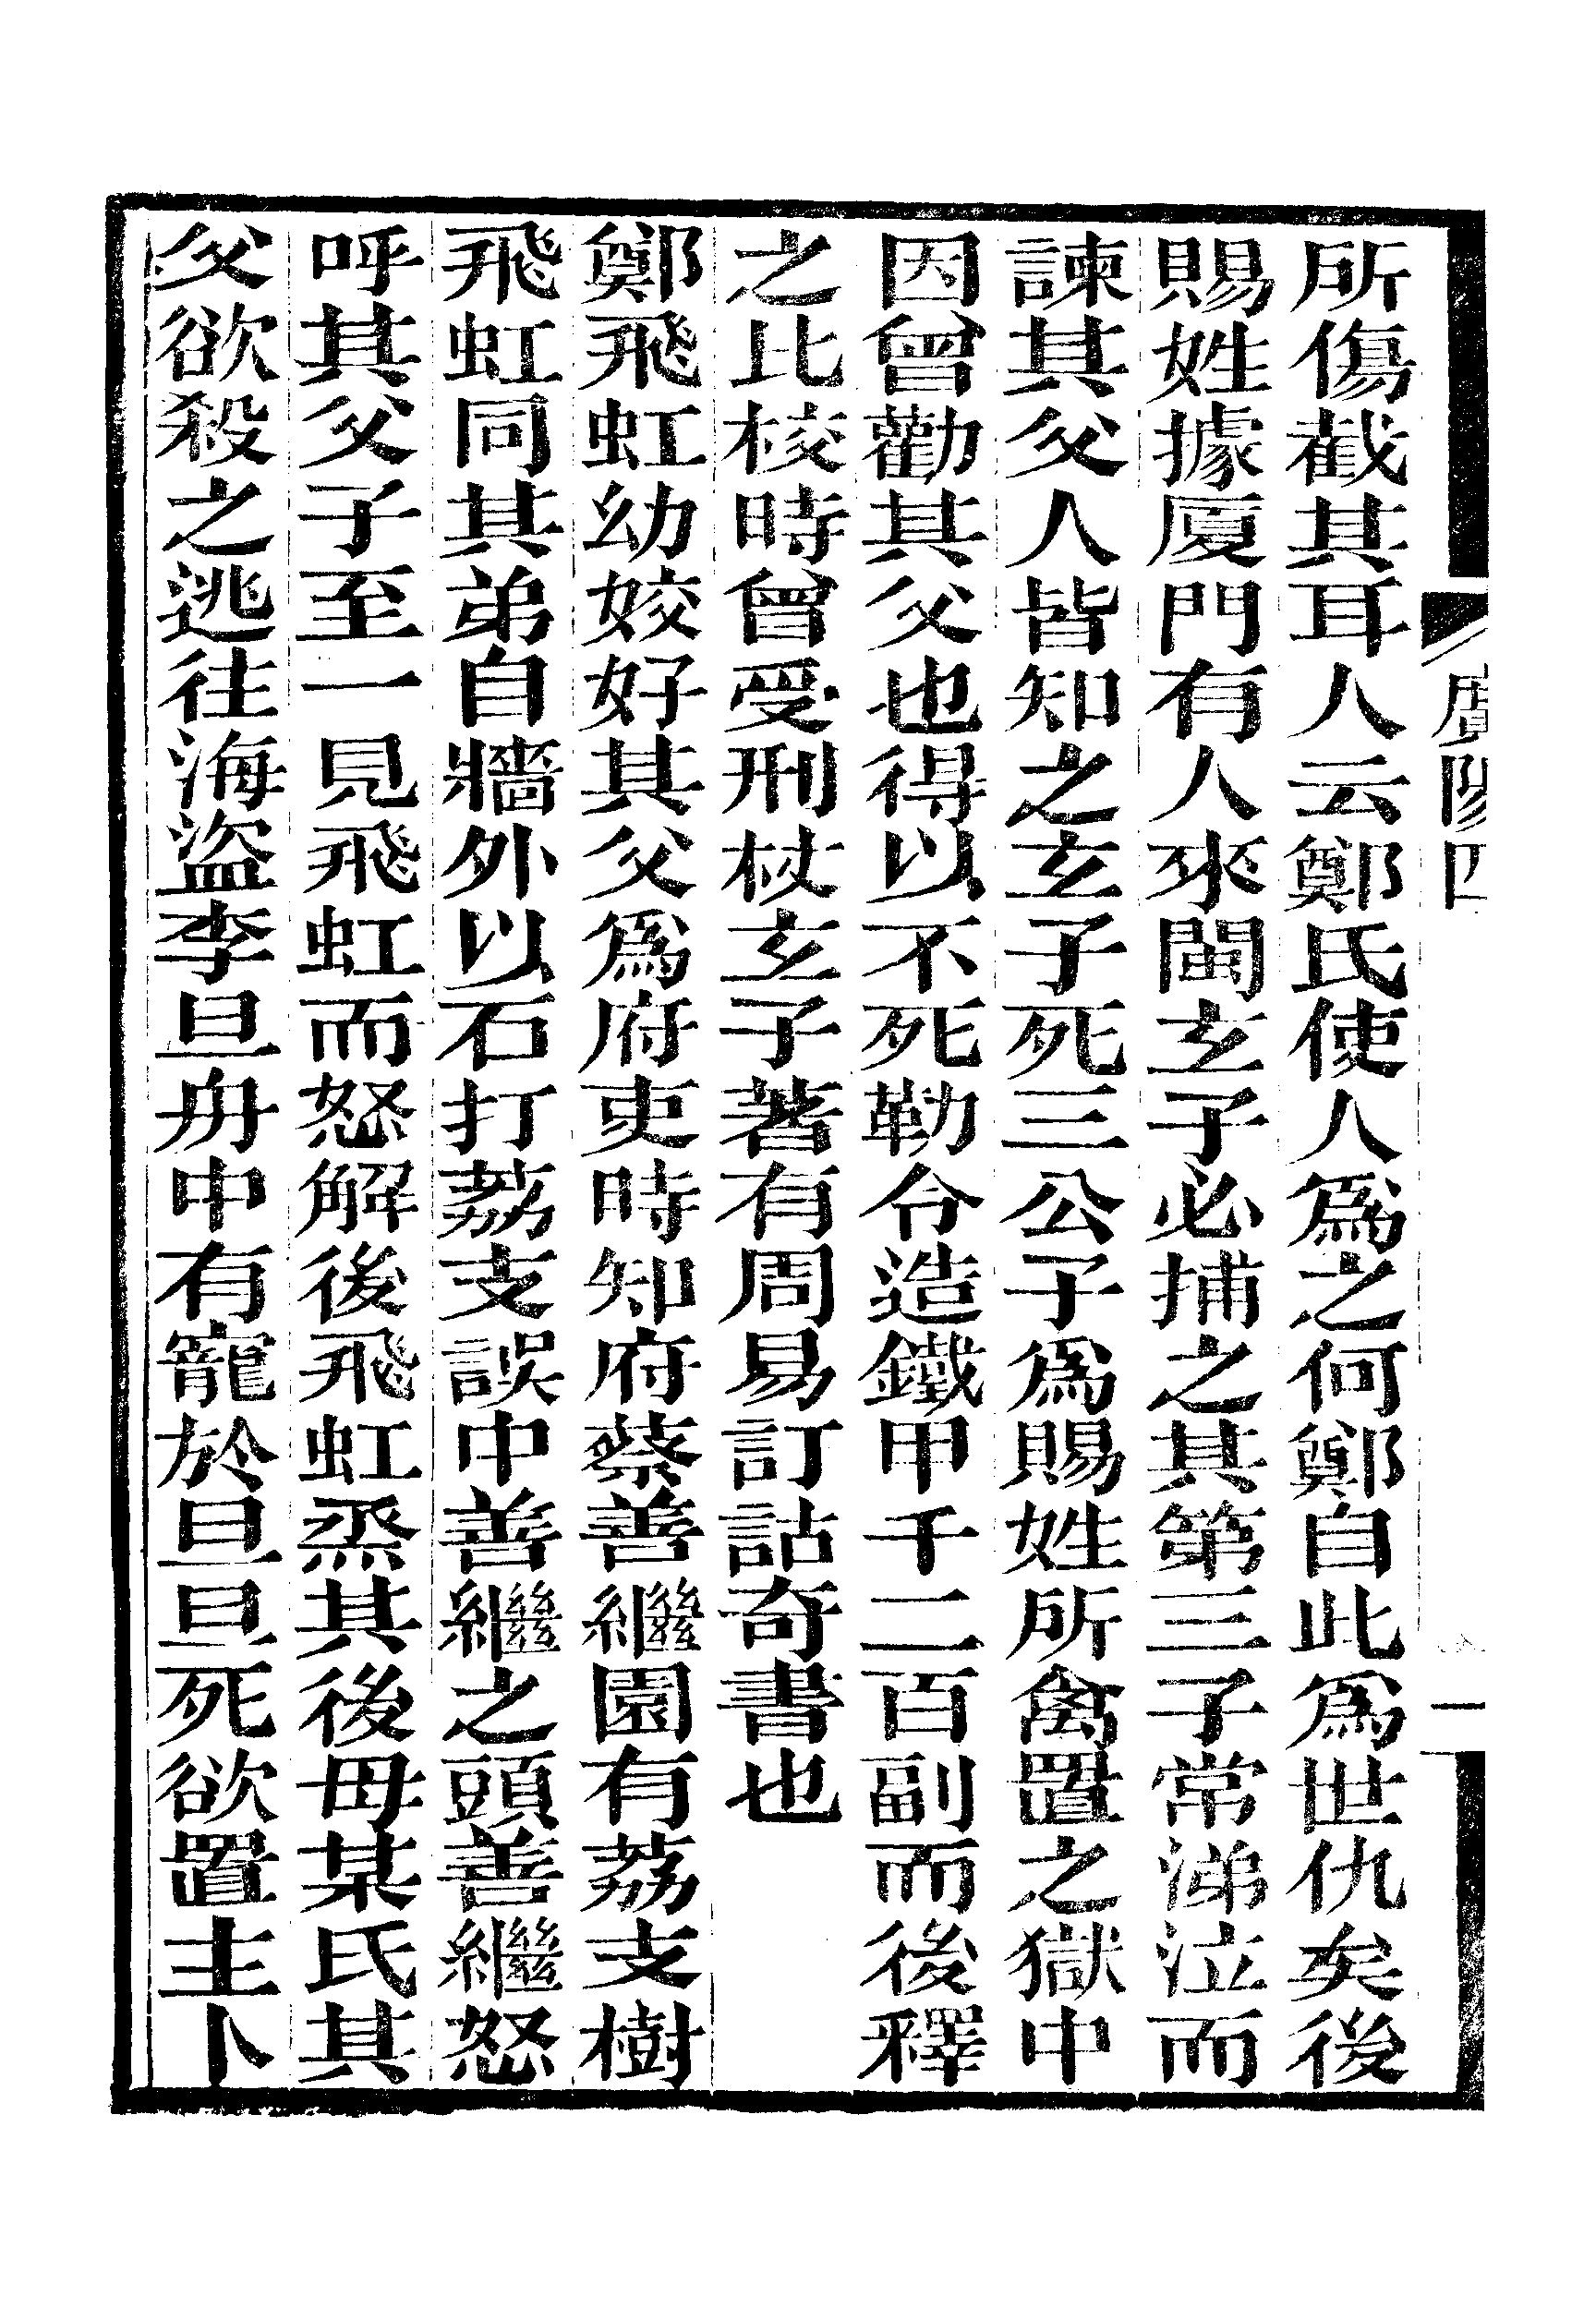 廣陽四
一
所傷截其耳人云鄭氏使人爲之何鄭自此爲世仇矣後
賜姓據厦門有人來閩玄子必捕之其第三子常涕泣而
諫其父人皆知之玄子死三公子爲賜姓所禽置之獄中
因曾勸其父也得以不死勒令造鐵甲千二百副而後釋
之比校時曾受刑杖玄子著有周易訂詁奇書也
鄭飛虹幼姣好其父爲府吏時知府蔡善繼園有荔支樹
飛虹同其弟自牆外以石打荔支誤中善繼之頭善繼怒
呼其父子至一見飛虹而怒解後飛虹烝其後母某氏其
父欲殺之逃往海盜李旦舟中有寵於旦旦死欲置主卜